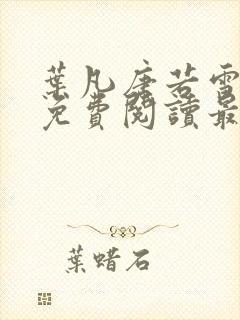 葉凡唐若雪
免費閱讀最
葉蜡石